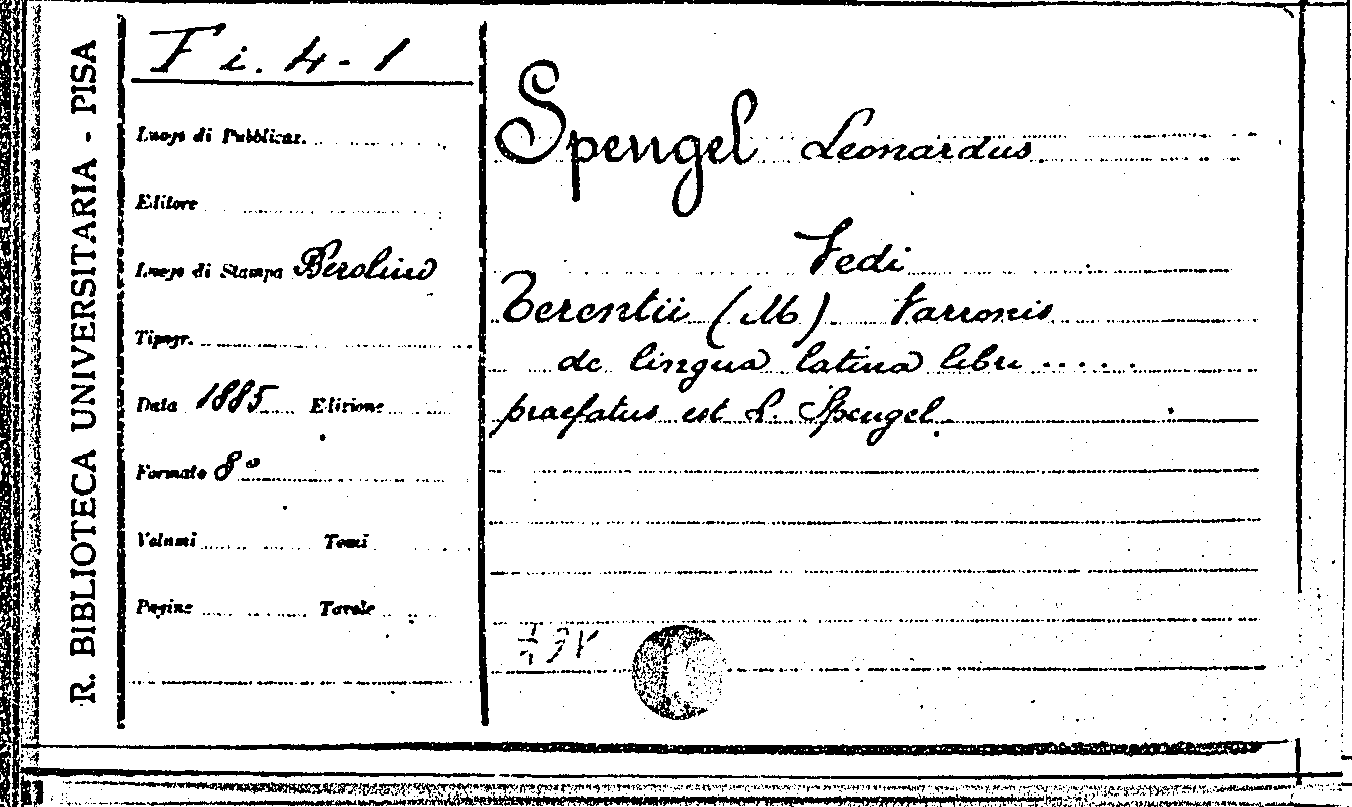 R. BIBLIOTECA UNIVERSITARIA - PISA
F i. 4 - 1
Luogo di Pubblicaz.
Editore
Luogo di Stampa Berolino
Tipogr.
Data 1885 Edizione
Formato 8°
Volumi Tomi
Pagine Tavole
Spengel Leonardus
Vedi
Terentii (M) Varronis
de lingua latina libri .....
praefatus est L. Spengel.